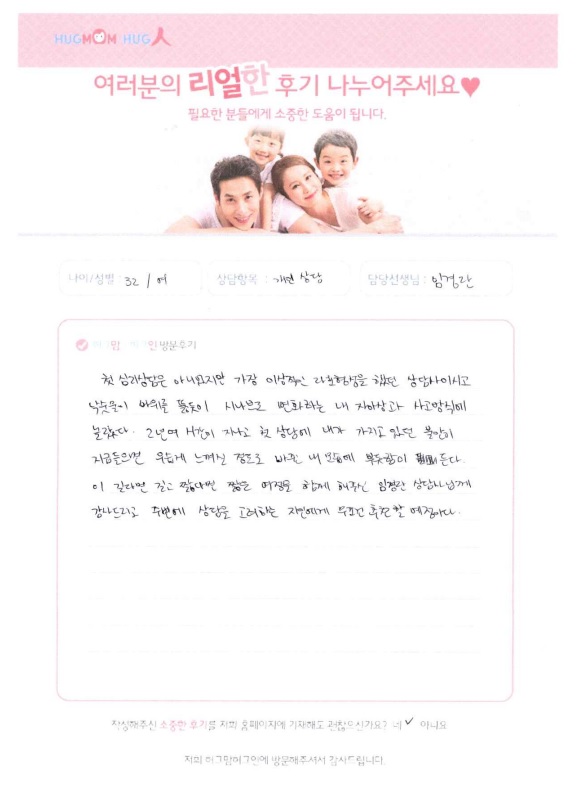 HUGMOM HUG人
여러분의 리얼한 후기 나누어주세요♥
필요한 분들에게 소중한 도움이 됩니다.
나이/성별 : 32 / 여 상담항목 : 개인 상담 담당선생님 : 임경란
허그맘 허그인 방문후기
첫 심리상담은 아니었지만 가장 이상적인 라포형성을 했던 상담사이시고
낙숫물이 바위를 뚫듯이 시나브로 변화하는 내 자아상과 사고방식에
놀랐다. 2년여 시간이 지나고 첫 상담에 내가 가지고 있던 불안이
지금 들으면 우습게 느껴질 정도로 바뀐 내 모습에 뿌듯함이 든다.
이 길다면 길고 짧다면 짧은 여정을 함께 해주신 임경란 상담사님께
감사드리고 주변에 상담을 고려하는 지인에게 무조건 추천할 예정이다.
작성해주신 소중한 후기를 저희 홈페이지에 기재해도 괜찮으신가요? 네 ✓ 아니요
저희 허그맘허그인에 방문해주셔서 감사드립니다.